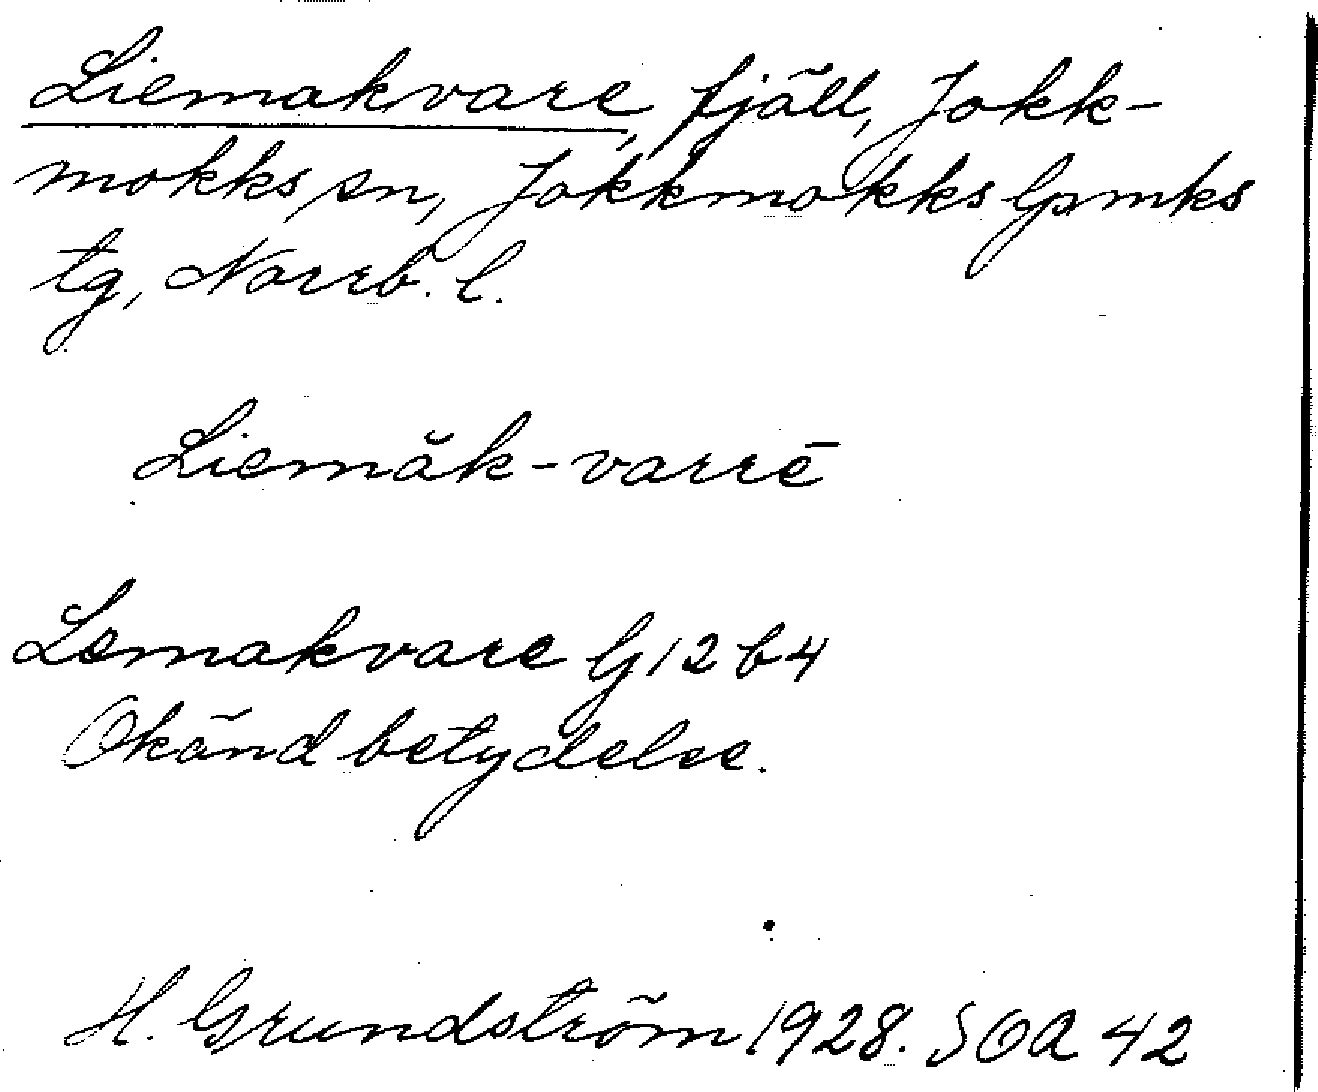 Liemakvare, fjäll, Jokk-
mokks sn, Jokkmokks lpmks
tg, Norrb. l.
Liemăk-varrē
Lemakvare G12b4
Okänd betydelse.
H. Grundström 1928. SOA 42